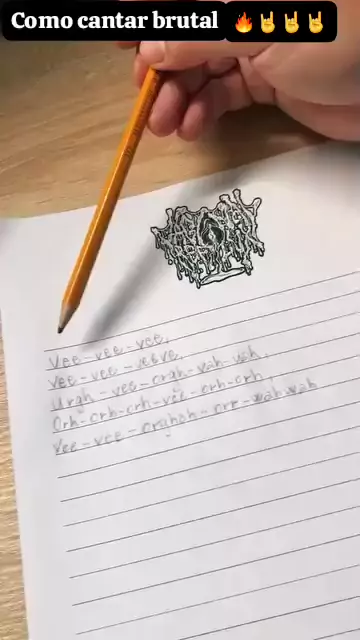 Como cantar brutal 🔥🤘🤘🤘
Vee-vee-vee,
vee-vee-veeve,
Urgh-vee-orgh-vah-vah,
Orh-orh-orh-vee-orh-orh
Vee-vee-orghah-orr-wah wah